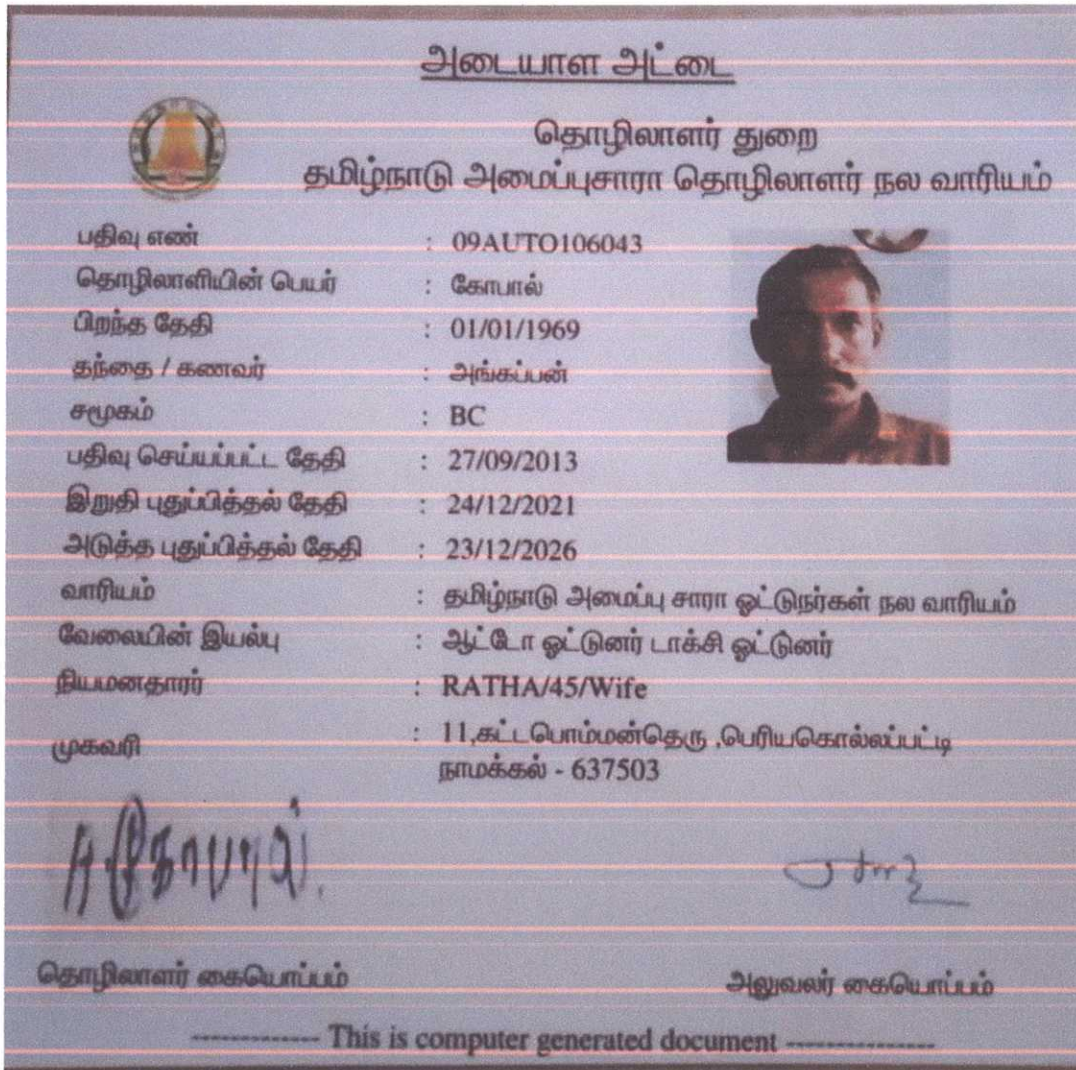 அடையாள அட்டை
தொழிலாளர் துறை
தமிழ்நாடு அமைப்புசாரா தொழிலாளர் நல வாரியம்
பதிவு எண் : 09AUTO106043
தொழிலாளியின் பெயர் : கோபால்
பிறந்த தேதி : 01/01/1969
தந்தை / கணவர் : அங்கப்பன்
சமூகம் : BC
பதிவு செய்யப்பட்ட தேதி : 27/09/2013
இறுதி புதுப்பித்தல் தேதி : 24/12/2021
அடுத்த புதுப்பித்தல் தேதி : 23/12/2026
வாரியம் : தமிழ்நாடு அமைப்பு சாரா ஓட்டுநர்கள் நல வாரியம்
வேலையின் இயல்பு : ஆட்டோ ஓட்டுனர் டாக்சி ஓட்டுனர்
நியமனதாரர் : RATHA/45/Wife
முகவரி : 11,கட்டபொம்மன்தெரு ,பெரியகொல்லப்பட்டி
நாமக்கல் - 637503
தொழிலாளர் கையொப்பம் அலுவலர் கையொப்பம்
------------- This is computer generated document ---------------